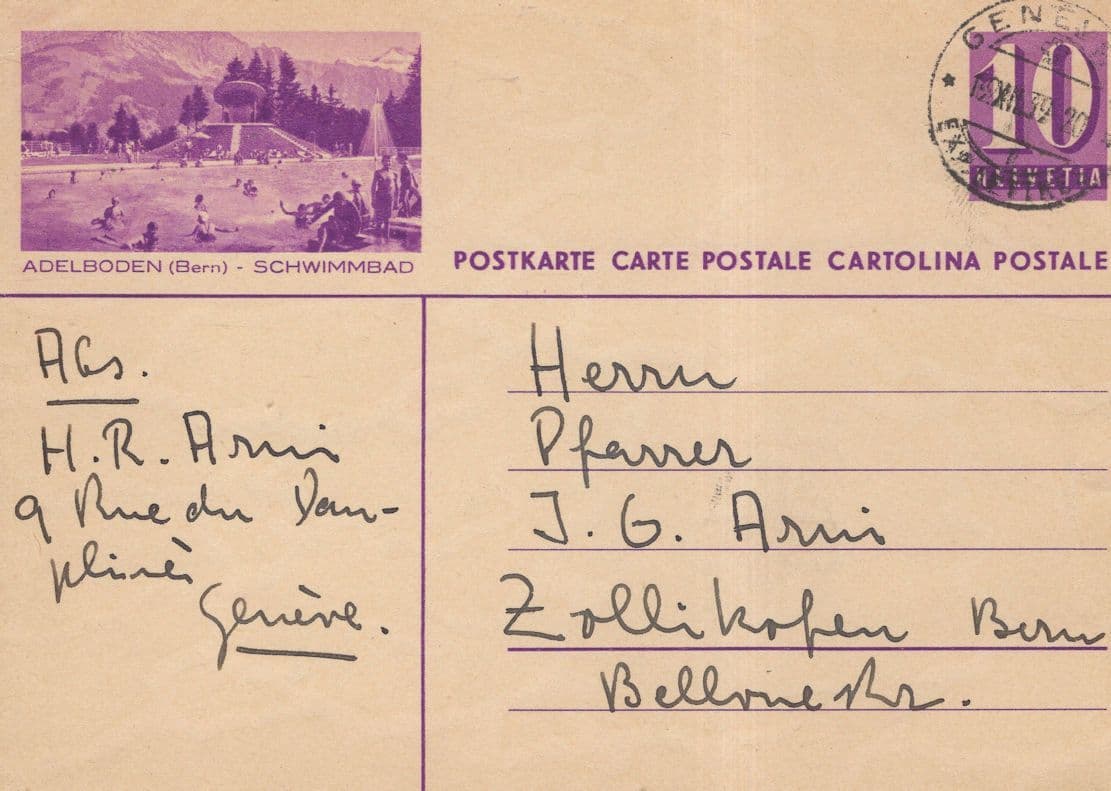 ADELBODEN (Bern) - SCHWIMMBAD
POSTKARTE CARTE POSTALE CARTOLINA POSTALE
GENÈV
10
HELVETIA
Abs.
H. R. Arni
9 Rue du Dau-
phiné
Genève.
Herrn
Pfarrer
J. G. Arni
Zollikofen Bern
Bellvuestr.